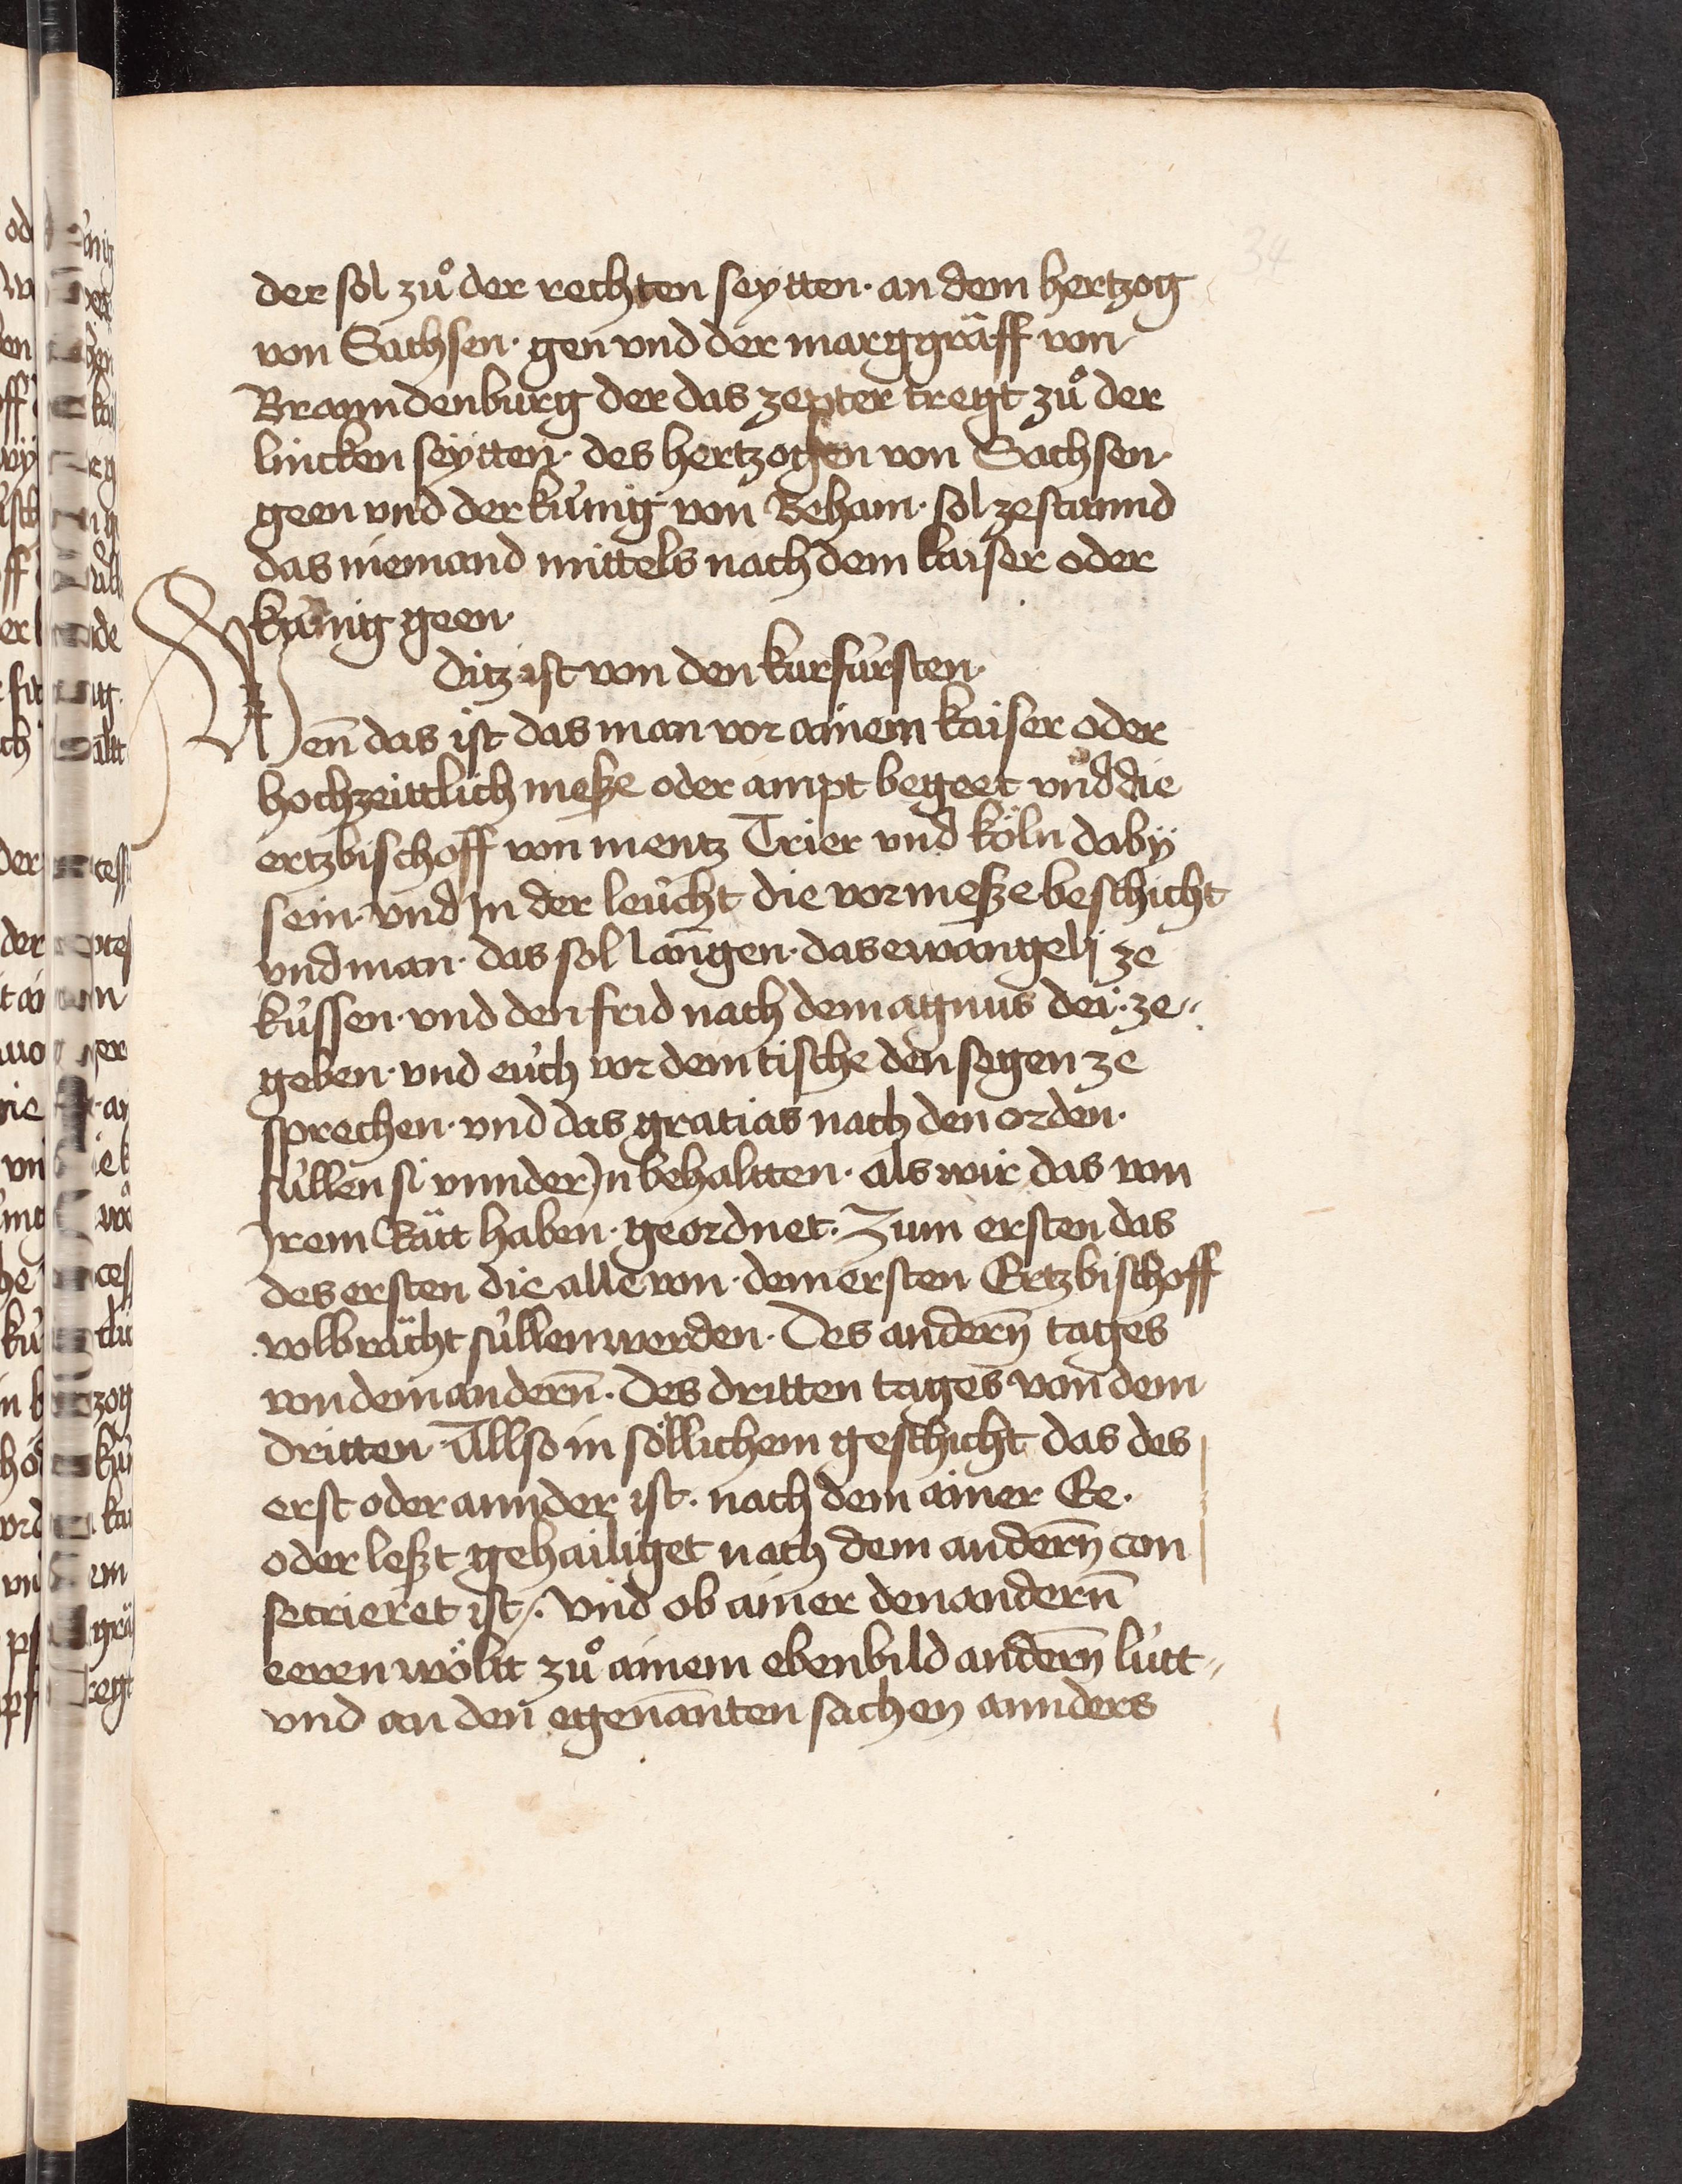 34
der sol zuͦ der rechten seytten · an dem hertzog
von Sachsen · gen vnd der marggräff von
Branndenburg der das zepter tregt zuͦ der
lincken seÿtten · des hertzogen von Sachsen ·
geen vnd der kúnig von Beham · sol zestunnd
das niemand mittels nach dem kaiser oder
kúnig geen ·
Ditz ist von den kurfúrsten ·
Wen̄ das ist das man vor ainem kaiser oder
hochzeittlich mesze oder ampt begeet vnd die
ertzbischoff von mentz Trier vnd köln dabÿ
sein · vnd In der leúcht die vor mesze beschicht
vnd man · das sol langen · das ewangelj ze
kússen · vnd den frid nach dem agnus dei · ze„
geben · vnd eúch vor dem tische den segen ze
sprechen · vnd das gratias nach den orden ·
súllen si vnnder In behaltten · als wir das von
Irem Rätt haben · geordnet · Zum ersten das
des ersten die alle von · dem ersten Ertzbischoff
volbrächt súllen werden · Des andern̄ tages
von dem andern̄ · Des dritten tages von dem
dritten · Allso in söllichem geschicht das des
erst oder annder ist · nach dem ainer Ee ·
oder leszt gehailiget nach dem andern̄ con
secrieret ist / · Vnd ob ainer den andern̄
eeren wöltt zuͦ ainem ebenbild andern̄ lútt„
vnd an den egenan̄ten sachen annders